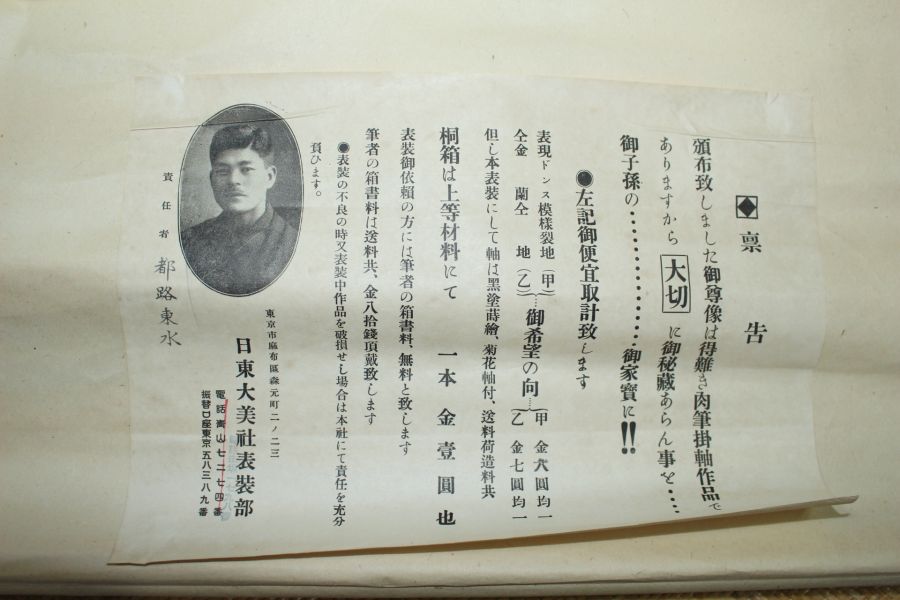 ◆稟告
頒布致しました御尊像は得難き肉筆掛軸作品で
ありますから大切に御秘藏あらん事を‥‥
御子孫の‥‥‥‥‥‥‥‥御家寶に!!
●左記御便宜取計致します
表現ドンス模様裂地(甲)‥‥御希望の向‥‥甲 金六圓均一
仝金蘭仝地(乙)‥‥御希望の向‥‥乙 金七圓均一
但し本表装にして軸は黑塗蒔繪、菊花軸付、送料荷造料共
桐箱は上等材料にて 一本金壹圓也
表装御依賴の方には筆者の箱書料、無料と致します
筆者の箱書料は送料共、金八拾錢頂戴致します
●表装の不良の時又表装中作品を破損せし場合は本社にて責任を充分
負ひます。
東京市麻布區森元町二ノ二三
日東大美社表装部
電話靑山七二七四番
振替口座東京五八三八九番
責任者 都路東水